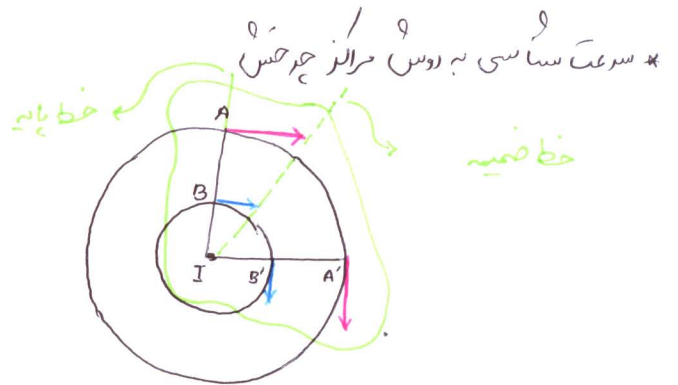 * سرعت شناسی به روش مراکز چرخش
خط پایه
خط ضمیمه
A
B
I
B'
A'